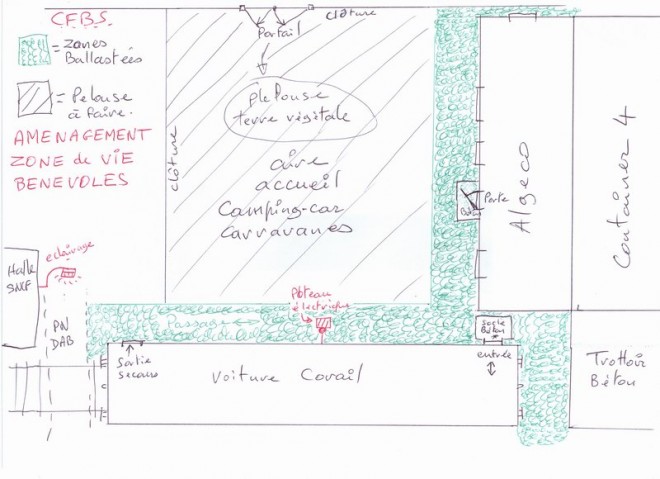 C.F.B.S.
= zones
Ballastées
= Pelouse
à faire.
AMENAGEMENT
ZONE de VIE
BENEVOLES
clôture
Portail
clôture
pelouse
terre végétale
aire
accueil
Camping-car
Carravanes
Algeco
Containaer 4
Porte
Béton
Halle
SNCF
eclairage
PN
DAB
Passage
Poteau
électrique
Socle
Béton
entrée
Sortie
secours
Voiture Corail
Trottoir
Béton